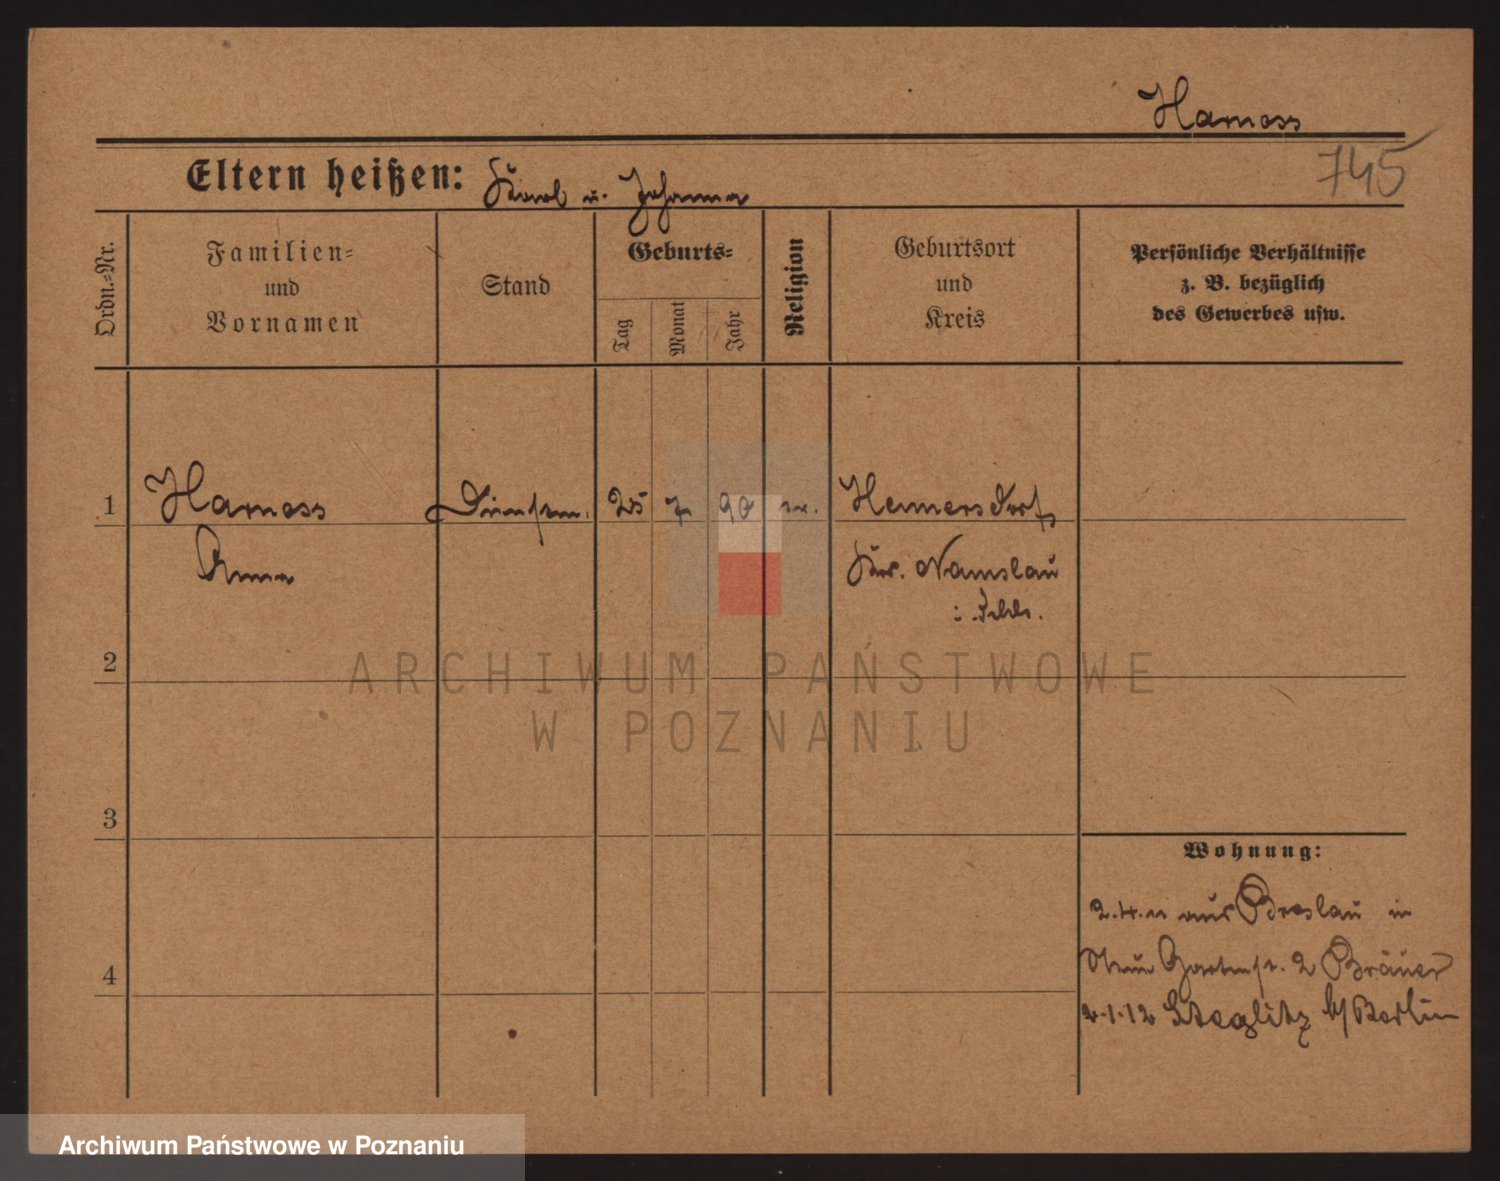 Hamoss
745
Eltern heißen: Karl u. Johanna
Ordn.=Nr.
Familien=
und
Vornamen
Stand
Geburts=
Tag
Monat
Jahr
Religion
Geburtsort
und
Kreis
Persönliche Verhältnisse
z. B. bezüglich
des Gewerbes usw.
1 Hamoss 25 7 90 ev. Hennersdorf
Anna
Kr. Namslau
i. Schls.
2
3
4
Wohnung:
2.4.11 aus Breslau in
Gartenstr. 2 Bräuer
2.1.12 Steglitz b/Berlin
ARCHIWUM PAŃSTWOWE
W POZNANIU
Archiwum Państwowe w Poznaniu